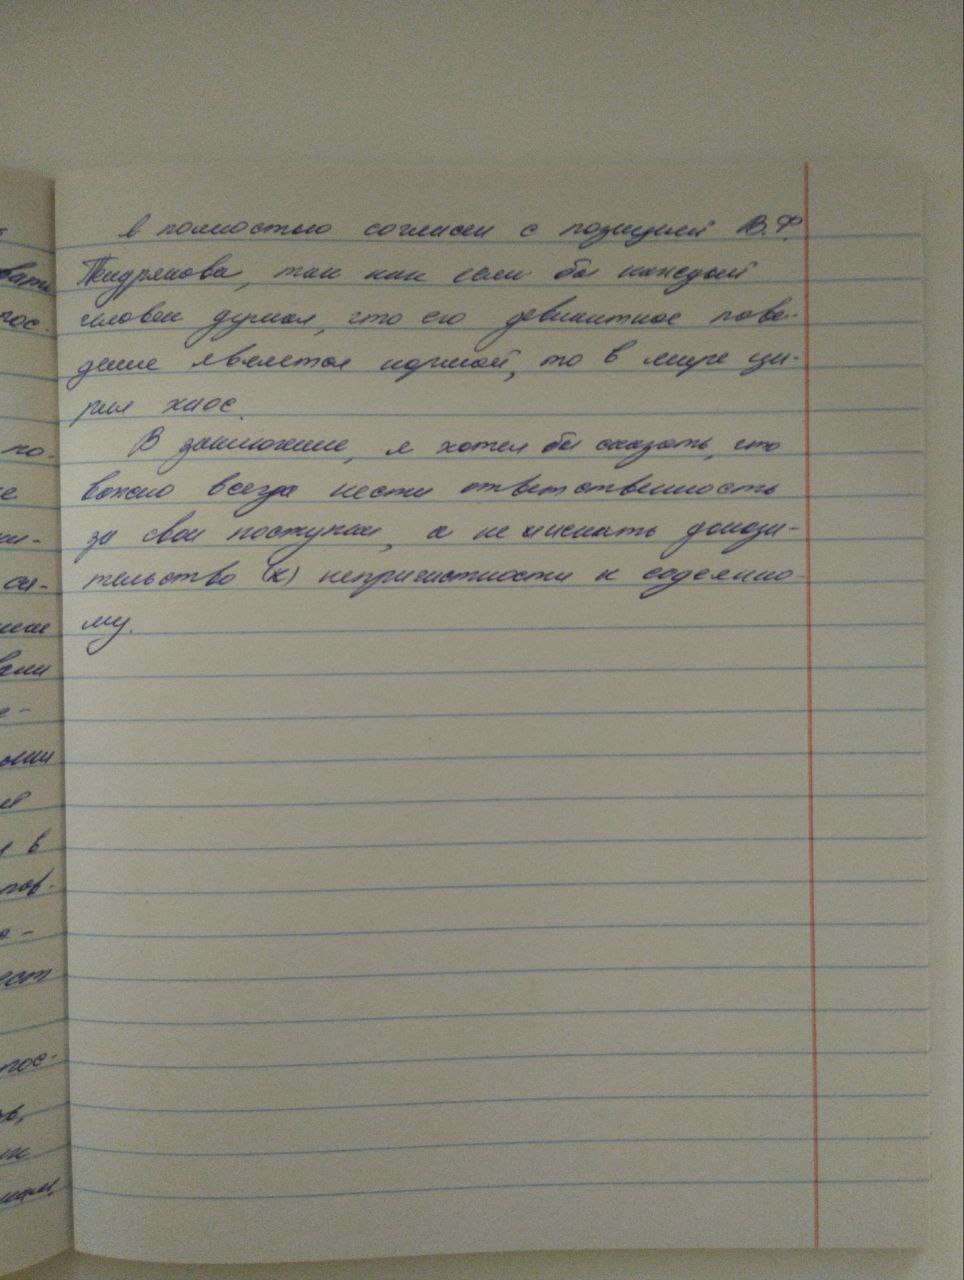 Я полностью согласен с позицией В.Ф.
Тендрякова, так как если бы каждый
человек думал, что его девиантное пове-
дение является нормой, то в мире ца-
рил хаос.
В заключение, я хотел бы сказать, что
важно всегда нести ответственность
за свои поступки, а не искать доказа-
тельство (к) непричастности к содеянно-
му.